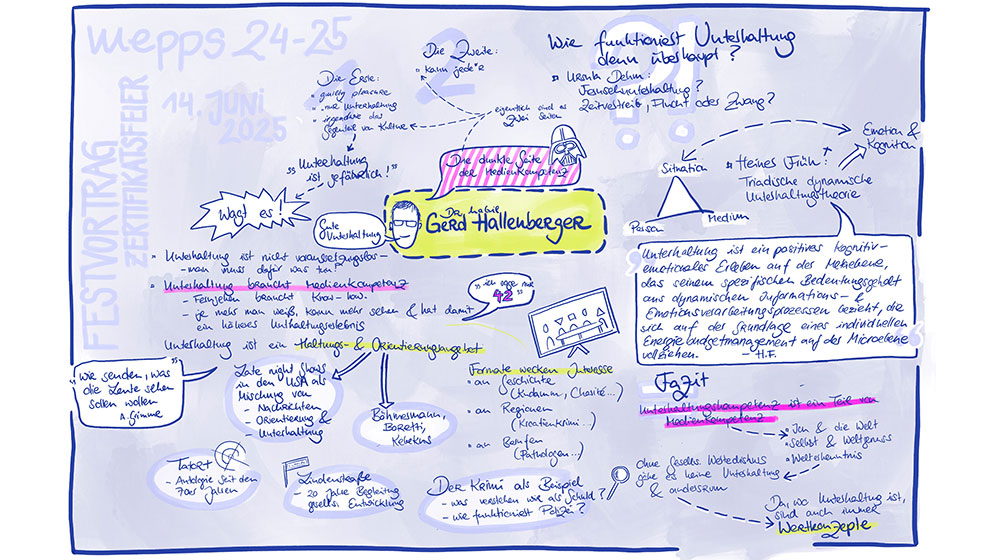 mepps 24-25
14. JUNI
2025
FESTVORTRAG
ZERTIFIKATSFEIER
Die Erste:
guilty pleasure
nur Unterhaltung
irgendwie das
Gegenteil von Kultur
1
Die Zweite:
kann jede*r
2
eigentlich sind es
Zwei Seiten
Wie funktioniert Unterhaltung
denn überhaupt?
Ursula Dehm:
Fernsehunterhaltung?
Zeitvertreib, Flucht oder Zwang?
?!
"Unterhaltung
ist gefährlich!"
Wagt es!
Die dunkle Seite
der Medienkompetenz
Gute
Unterhaltung
Dr. habil
Gerd Hallenberger
Situation
Person
Medium
Heines Früh:
Triadische dynamische
Unterhaltungstheorie
Emotion &
Kognition
Unterhaltung ist nicht voraussetzungslos -
- man muss dafür was tun!
Unterhaltung braucht Medienkompetenz
- Fernsehen braucht Know-how.
- je mehr man weiß, kann mehr sehen & hat damit
ein höheres Unthaltungserlebnis
"ich sage nur
42"
Unterhaltung ist ein Haltungs- & Orientierungsangebot
Unterhaltung ist ein positives kognitiv-
emotionales Erleben auf der Makroebene,
das seinem spezifischen Bedeutungsgehalt
aus dynamischen Informations- &
Emotionsverarbeitungsprozessen bezieht, die
sich auf der Grundlage eines individuellen
Energiebudgetmanagement auf der Microebene
vollziehen. - H.F.
"wir senden, was
die Leute sehen
sollen wollen"
A. Grimme
Late night Shows
in den USA als
Mischung von
- Nachrichten
- Orientierung &
- Unterhaltung
Böhmermann,
Boretti,
Kebekus
Formate wecken Interesse
an Geschichte
(Kudamm, Charité...)
an Regionen
(Kroatienkrimi...)
an Berufen
(Pathologen...)
Fazit
Unterhaltungskompetenz ist ein Teil von
Medienkompetenz
Ich & die Welt
Selbst & Weltgenuss
Welterkenntnis
Tatort
- Antologie seit den
70er Jahren
Lindenstraße
- 20 Jahre Begleitung
gesellsl. Entwicklung
Der Krimi als Beispiel
- was verstehen wir als Schuld?
- wie funktioniert Polizei?
ohne Gesells. Wertediskurs
gäbe es keine Unterhaltung
& andersrum
Da, wo Unterhaltung ist,
sind auch immer
Wertkonzepte